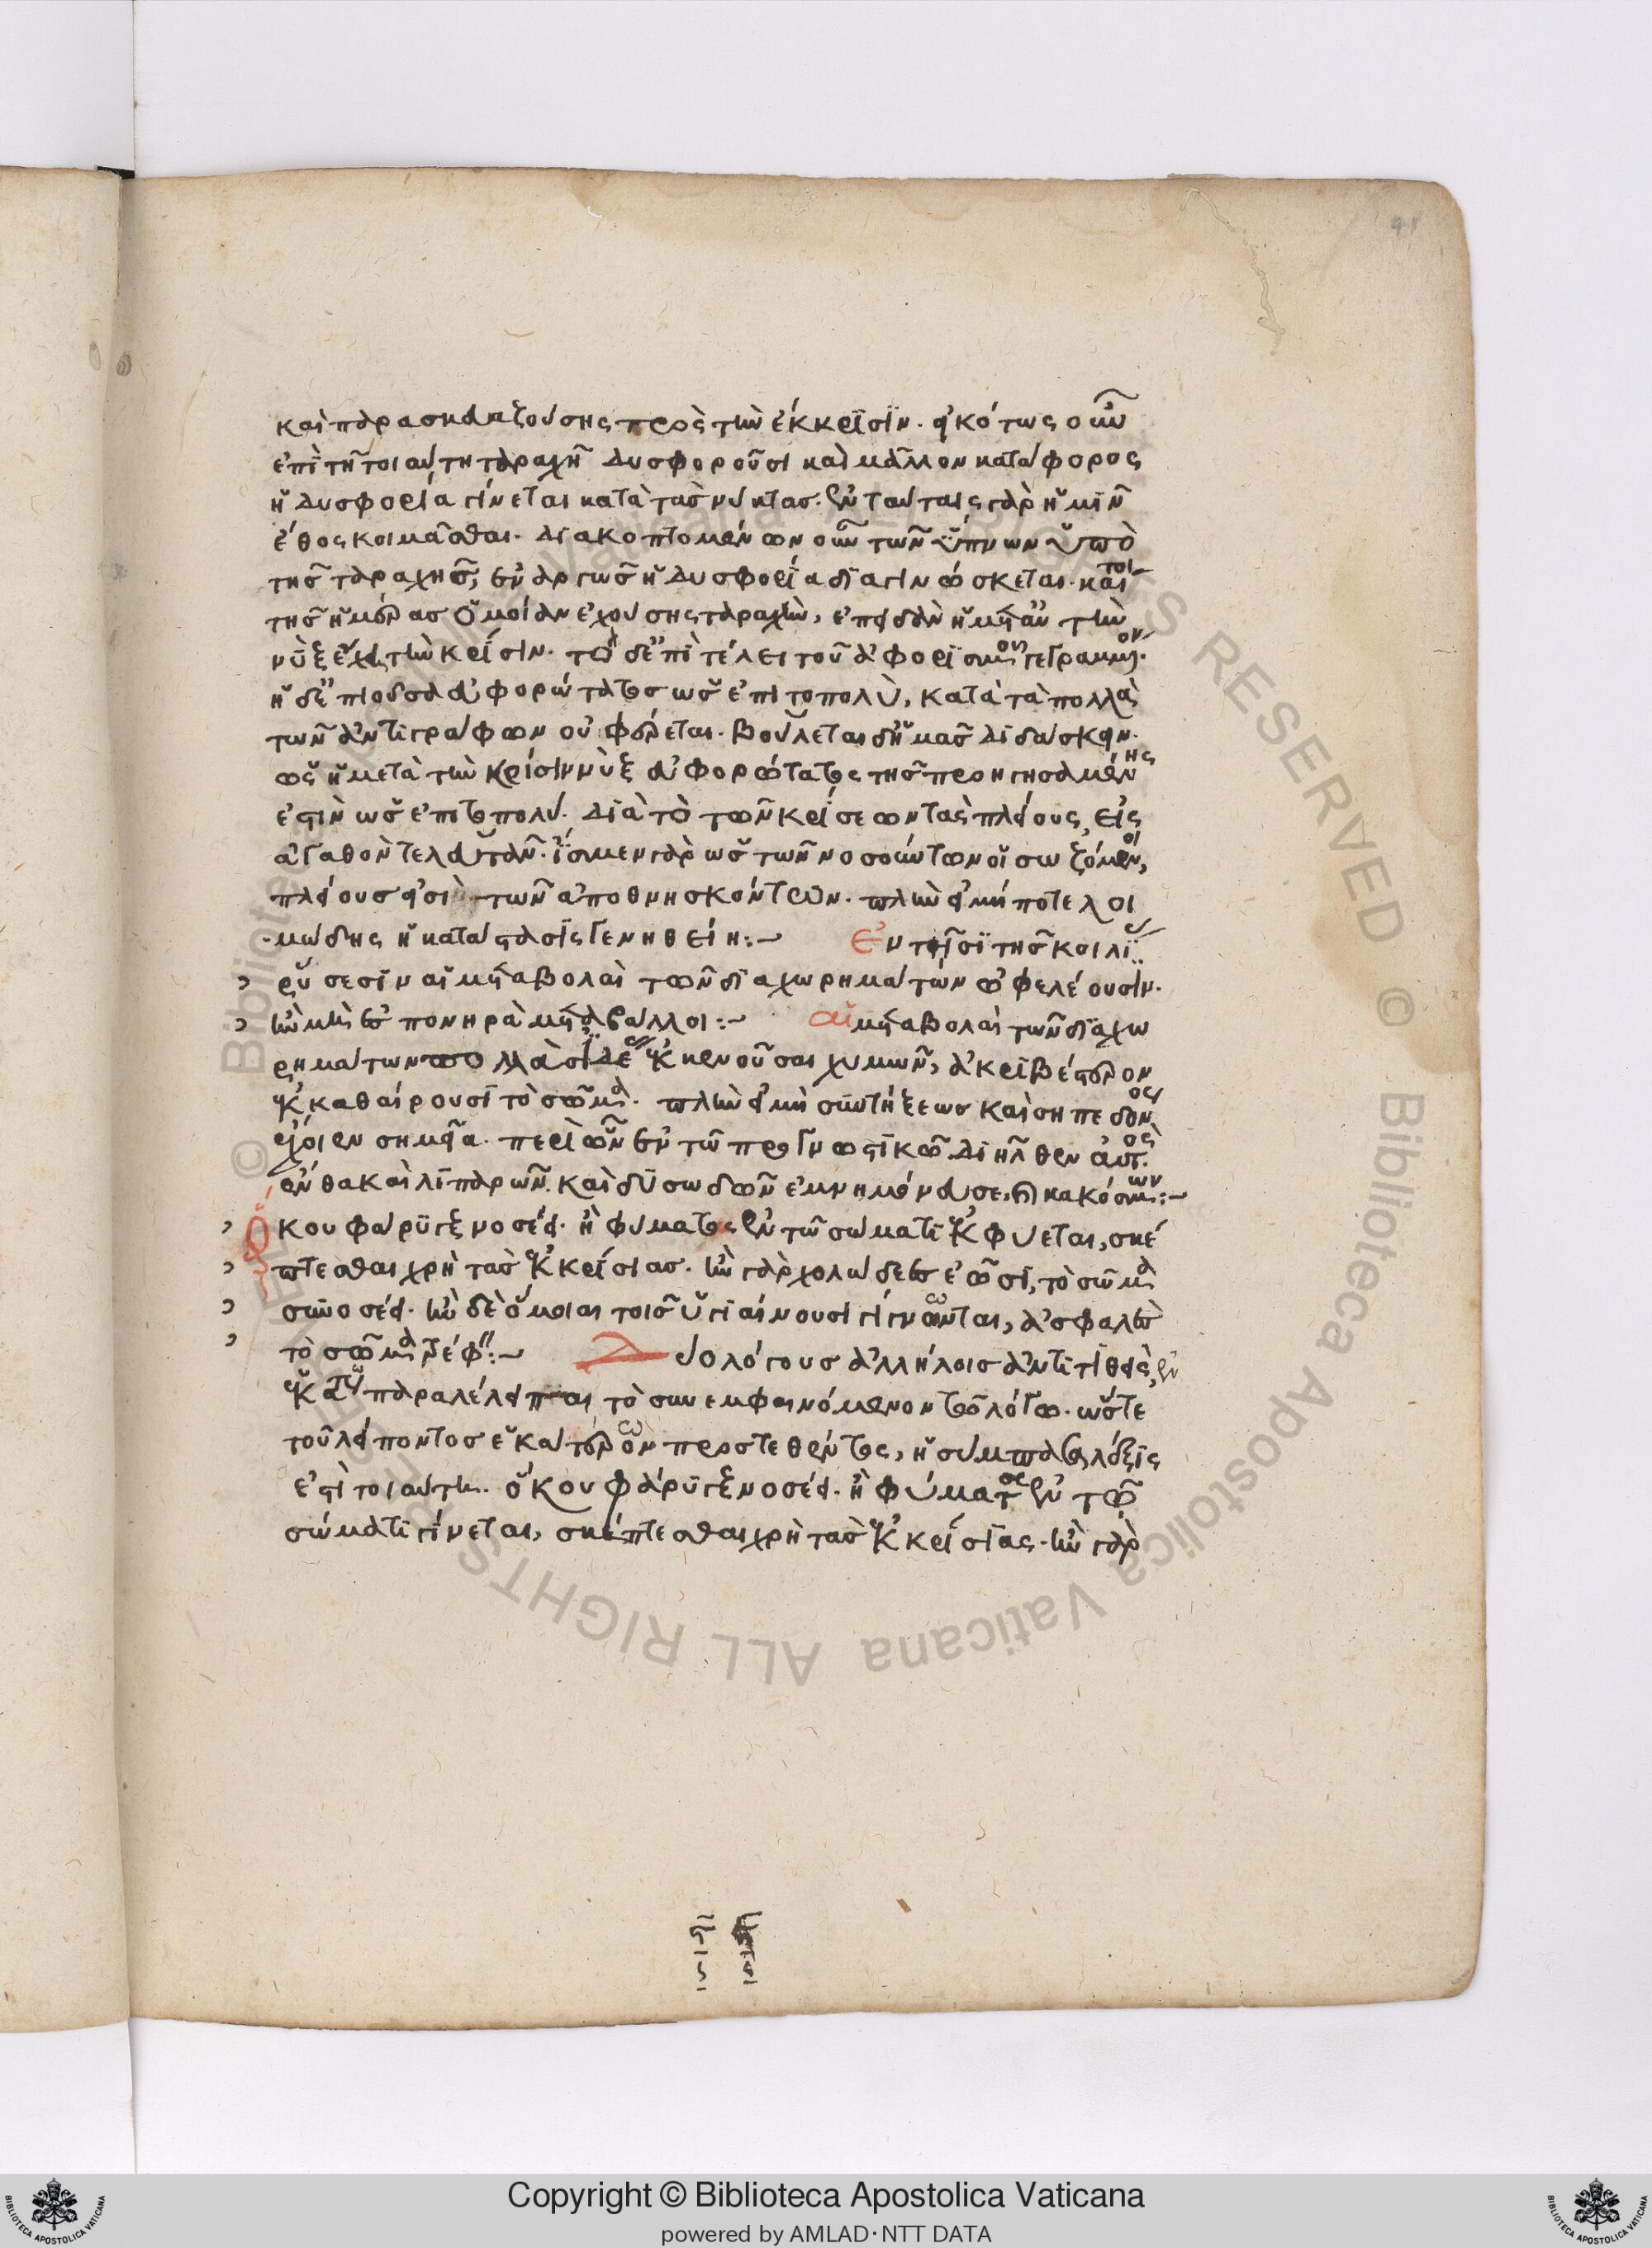 41
καὶ παρασκευαζούσης πρὸς τὴν ἔκκρισιν. εἰκότως οὖν
ἐπὶ τῇ τοιαύτῃ ταραχῇ δυσφοροῦσι καὶ μᾶλλον κατάφορος
ἡ δυσφορία γίνεται κατὰ τὰς νύκτας. ἐν ταύταις γὰρ ἡμῖν
ἔθος κοιμᾶσθαι. διακοπτομένων οὖν τῶν ὕπνων ὑπὸ
τῆς ταραχῆς, ἐναργῶς ἡ δυσφορία διαγινώσκεται. καίτοι
τῆς ἡμέρας ὁμοίαν ἐχούσης ταραχὴν, ἐπειδὰν ἡ μετ' αὐτὴν
νὺξ ἔχῃ τὴν κρίσιν. τὸ δ' ἐπὶ τέλει τοῦ ἀφορισμοῦ γεγραμμένον.
ἡ δ' ἐπιοῦσα εὐφορώτατος ὡς ἐπιτοπολὺ, κατὰ τὰ πολλὰ
τῶν ἀντιγράφων οὐ φέρεται. βούλεται δ' ἡμᾶς διδάσκειν.
ὡς ἡ μετὰ τὴν κρίσιν νὺξ εὐφορώτατος τῆς προηγησαμένης
ἐστὶν ὡς ἐπιτοπολύ. διὰ τὸ τῶν κρίσεων τὰς πλείους, εἰς
ἀγαθὸν τελευτᾶν. ἴσμεν γὰρ ὡς τῶν νοσούντων οἱ σωζόμενοι,
πλείους εἰσὶ τῶν ἀποθνησκόντων. πλὴν εἰ μήποτε λοι
μώδης ἡ κατάστασις γενηθείη:~ Ἐν τοῖσι τῆς κοιλίης
ῥύσεσιν αἱ μεταβολαὶ τῶν διαχωρημάτων ὠφελέουσιν.
ἢν μὴ ἐς πονηρὰ μεταβάλλοι:~ αἱ μεταβολαὶ τῶν διαχω
ρημάτων πολλὰς ἰδέας ἐκκενοῦσαι χυμῶν, ἀκριβέστερον
ἐκκαθαίρουσι τὸ σῶμα. πλὴν εἰ μὴ συντήξεως καὶ σηπεδόνος
ἔχοιεν σημεῖα. περὶ ὧν ἐν τῷ προγνωστικῷ διῆλθεν αὐτὸς
ἔνθα καὶ λιπαρῶν. καὶ δυσωδῶν ἐμνημόνευσε, διαχωρημάτων:~
κου φάρυγξ νοσέει. ἢ φύματος ἐν τῷ σώματι ἐκφύεται, σκέ
πτεσθαι χρὴ τὰς ἐκκρίσιας. ἢν γὰρ χολώδεες ἔωσι, τὸ σῶμα
συννοσέει. ἢν δὲ ὅμοιαι τοῖς ὑγιαίνουσι γίγνωνται, ἀσφαλὲς
τὸ σῶμα τρέφειν:~ Δύο λόγους ἀλλήλοις ἀντιτιθεὶς, ἐν
ἑκατέρῳ παραλέλειπται τὸ συνεμφαινόμενον τῷ λόγῳ. ὥστε
τοῦ λείποντος ἑκατέρων προστεθέντος, ἡ σύμπασα λέξις
ἐστὶ τοιαύτη. ὅκου φάρυγξ νοσέει. ἢ φύματος ἐν τῷ
σώματι γίνεται, σκέπτεσθαι χρὴ τὰς ἐκκρίσιας. ἢν γὰρ
Copyright © Biblioteca Apostolica Vaticana
powered by AMLAD·NTT DATA